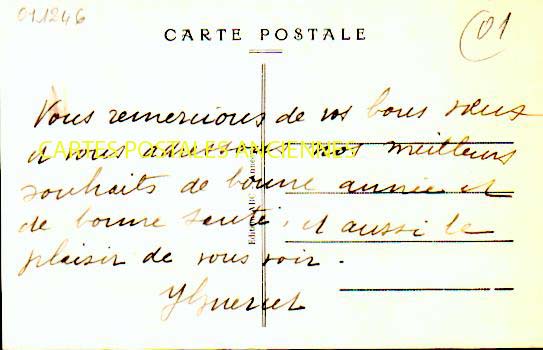 011246
01
CARTE POSTALE
Vous remercions de vos bons vœux
et vous adressons nos meilleurs
CARTES POSTALES ANCIENNES
souhaits de bonne année et
de bonne santé, et aussi le
plaisir de vous voir.